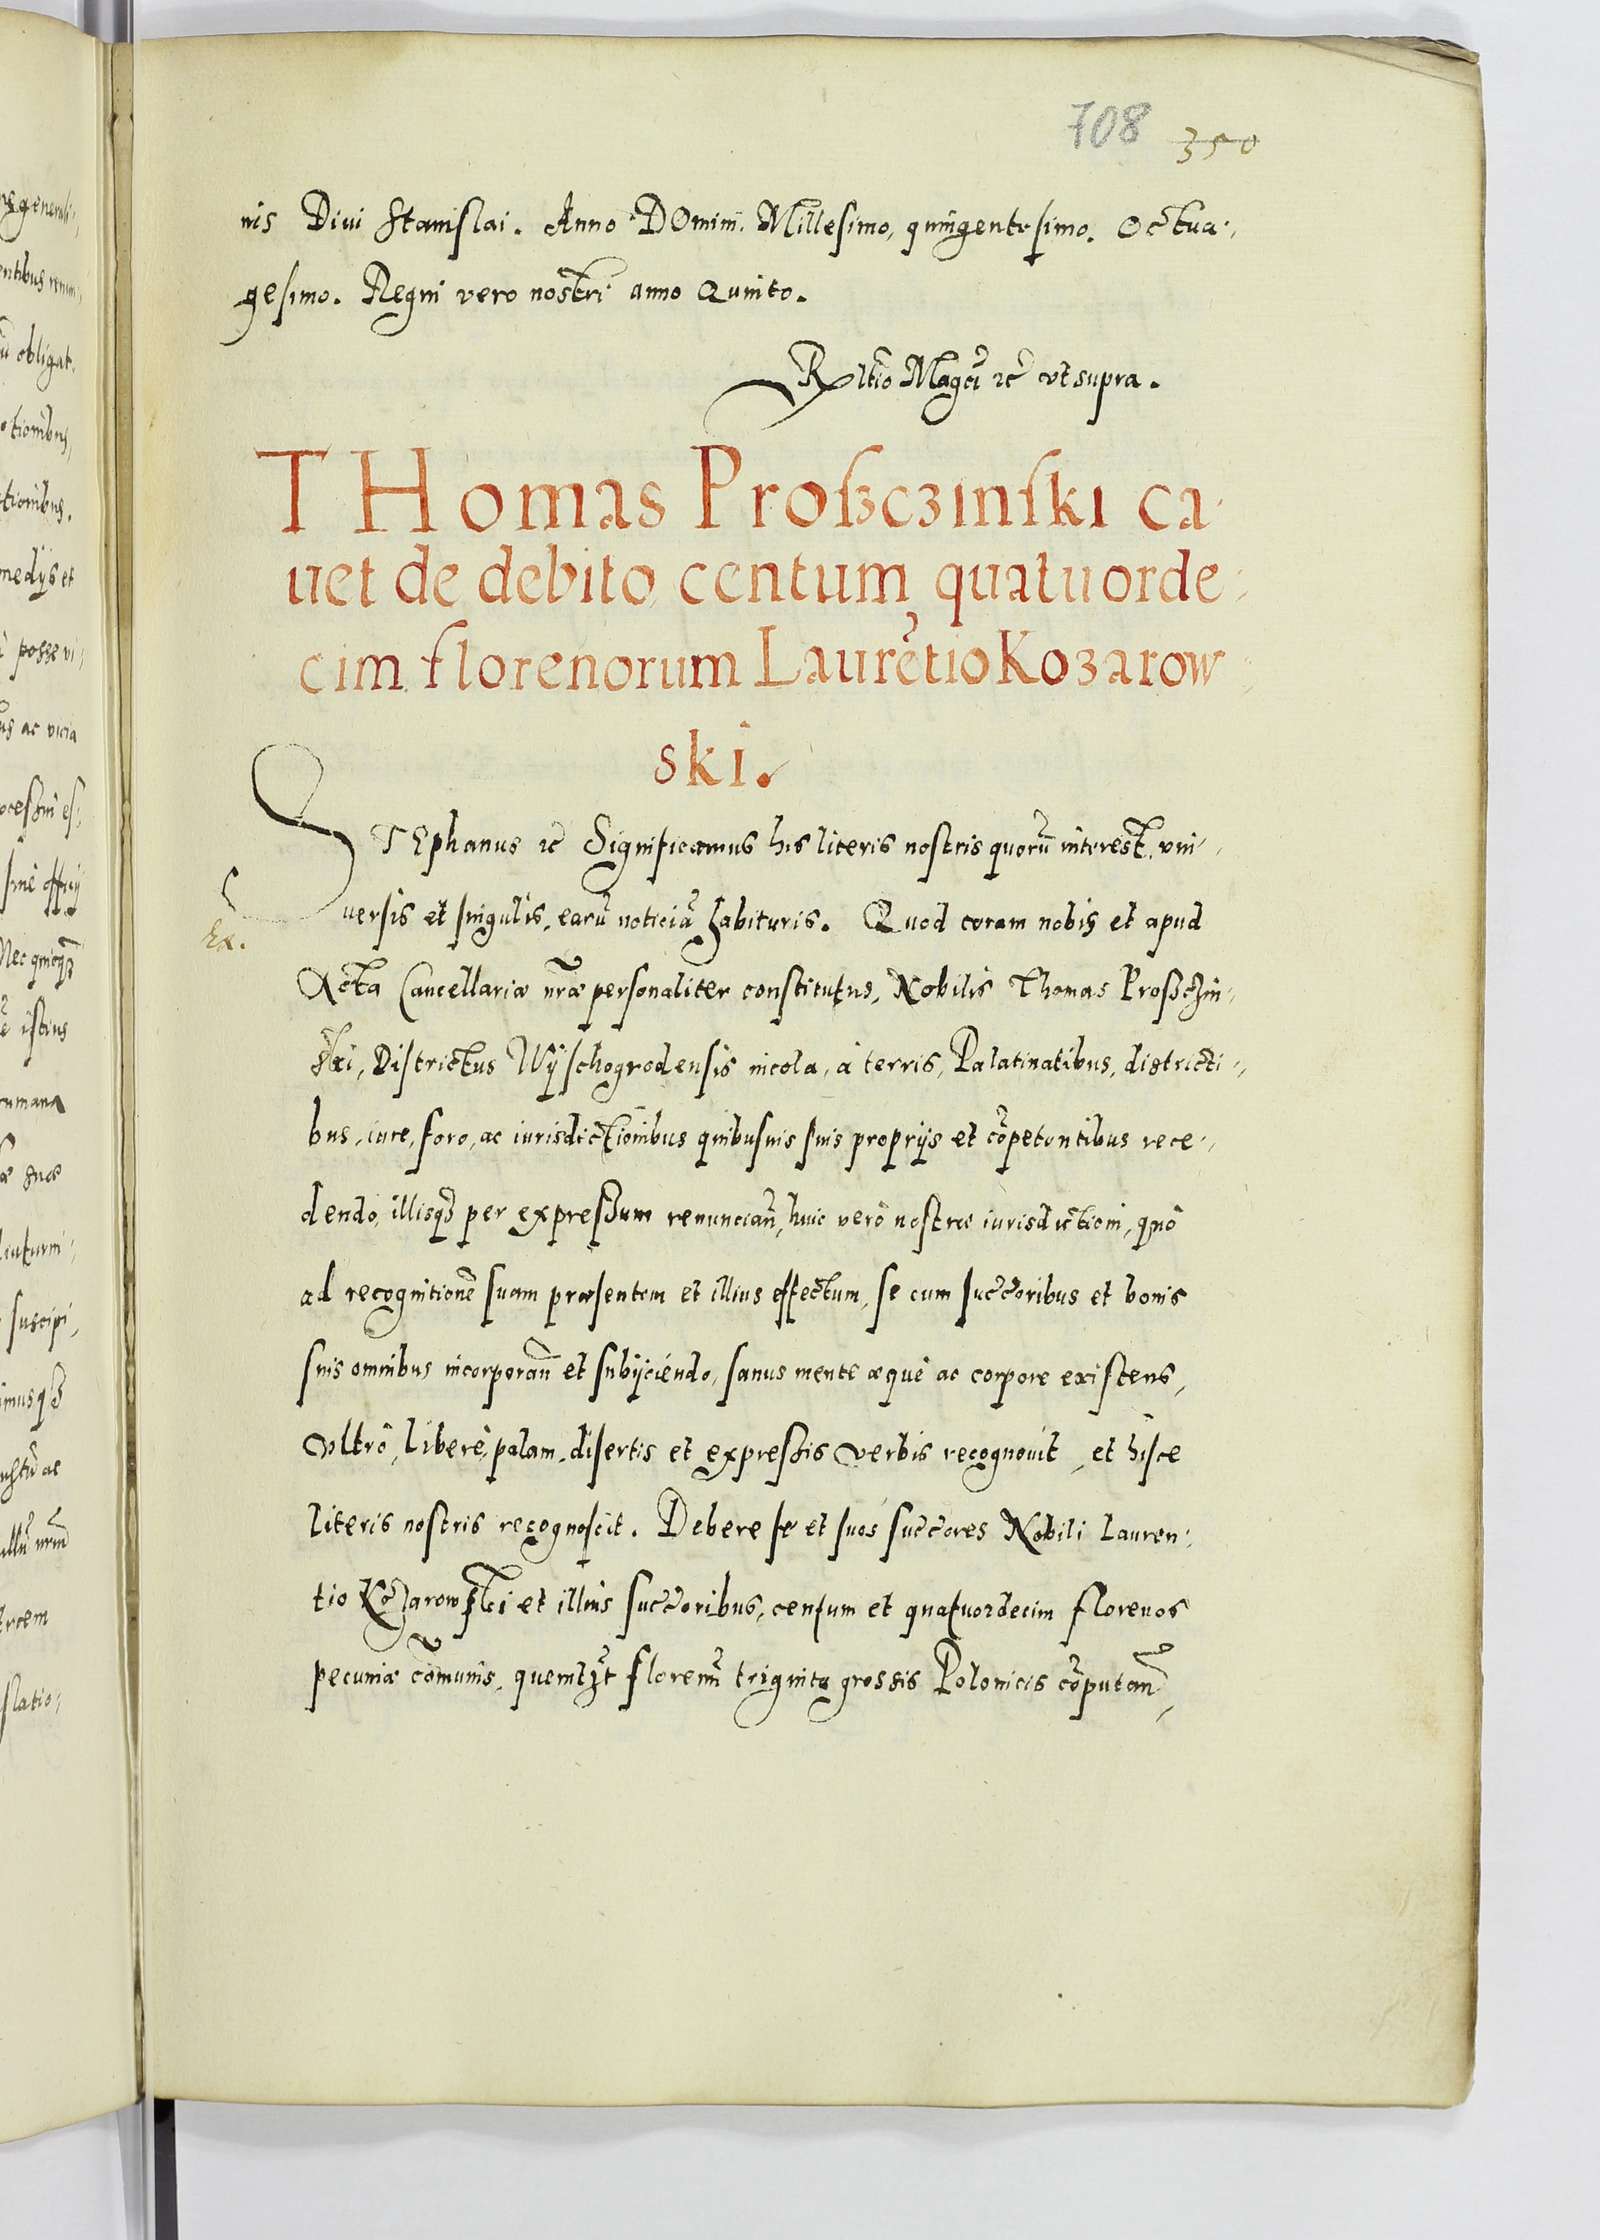 708 350
nis Diui Stanislai. Anno DOmini. Millesimo, quingentesimo. Octua-
gesimo. Regni vero nostri anno Quinto.
Rltio Magci ꝛc̃ vt supra.
THomas Proßczinski ca-
uet de debito centum quatuorde-
cim florenorum Laurẽtio Kozarow-
ski.
STEphanus ꝛc̃ Significamus his literis nostris quorũ interest, vni-
uersis et singulis, earũ noticiã habituris. Quod coram nobis et apud
Ex.
Acta Cancellariæ nr̃æ personaliter constitutus, Nobilis Thomas Proßczin-
ski, Districtus Wÿschogrodensis incola, á terris, Palatinatibus, districti-
bus, iure, foro, ac iurisdictionibus quibusuis suis proprijs et cõpetentibus rece-
dendo, illisqꝫ per expressum renuncian̄, huic verò nostræ iurisdictioni, quò
ad recognitionẽ suam præsentem et illius effectum, se cum succ̃oribus et bonis
suis omnibus incorporan̄ et subijciendo, sanus mente æquè ac corpore existens,
Vltrò, liberè, palam, disertis et expressis verbis recognouit, et hisce
literis nostris recognoscit. Debere se et suos succ̃ores Nobili Lauren-
tio Kozarowski et illius succ̃oribus, centum et quatuordecim florenos
pecuniæ cõmunis, quemlꝫt florenũ triginta grossis Polonicis cõputan̄,